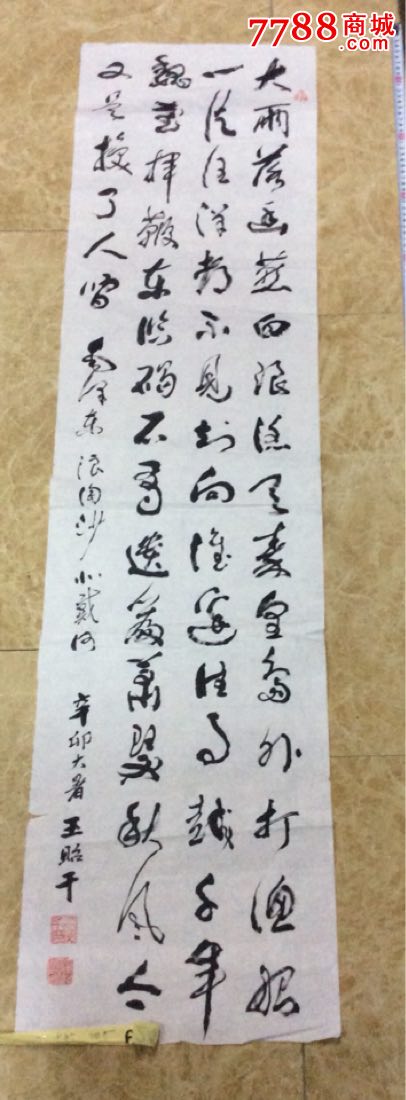 7788商城
.com
大雨落幽燕白浪滔天秦皇岛外打渔船
一片汪洋都不见知向谁边往事越千年
魏武挥鞭东临碣石有遗篇萧瑟秋风今
又是换了人间 毛泽东 浪淘沙 北戴河 辛卯大暑 王
F